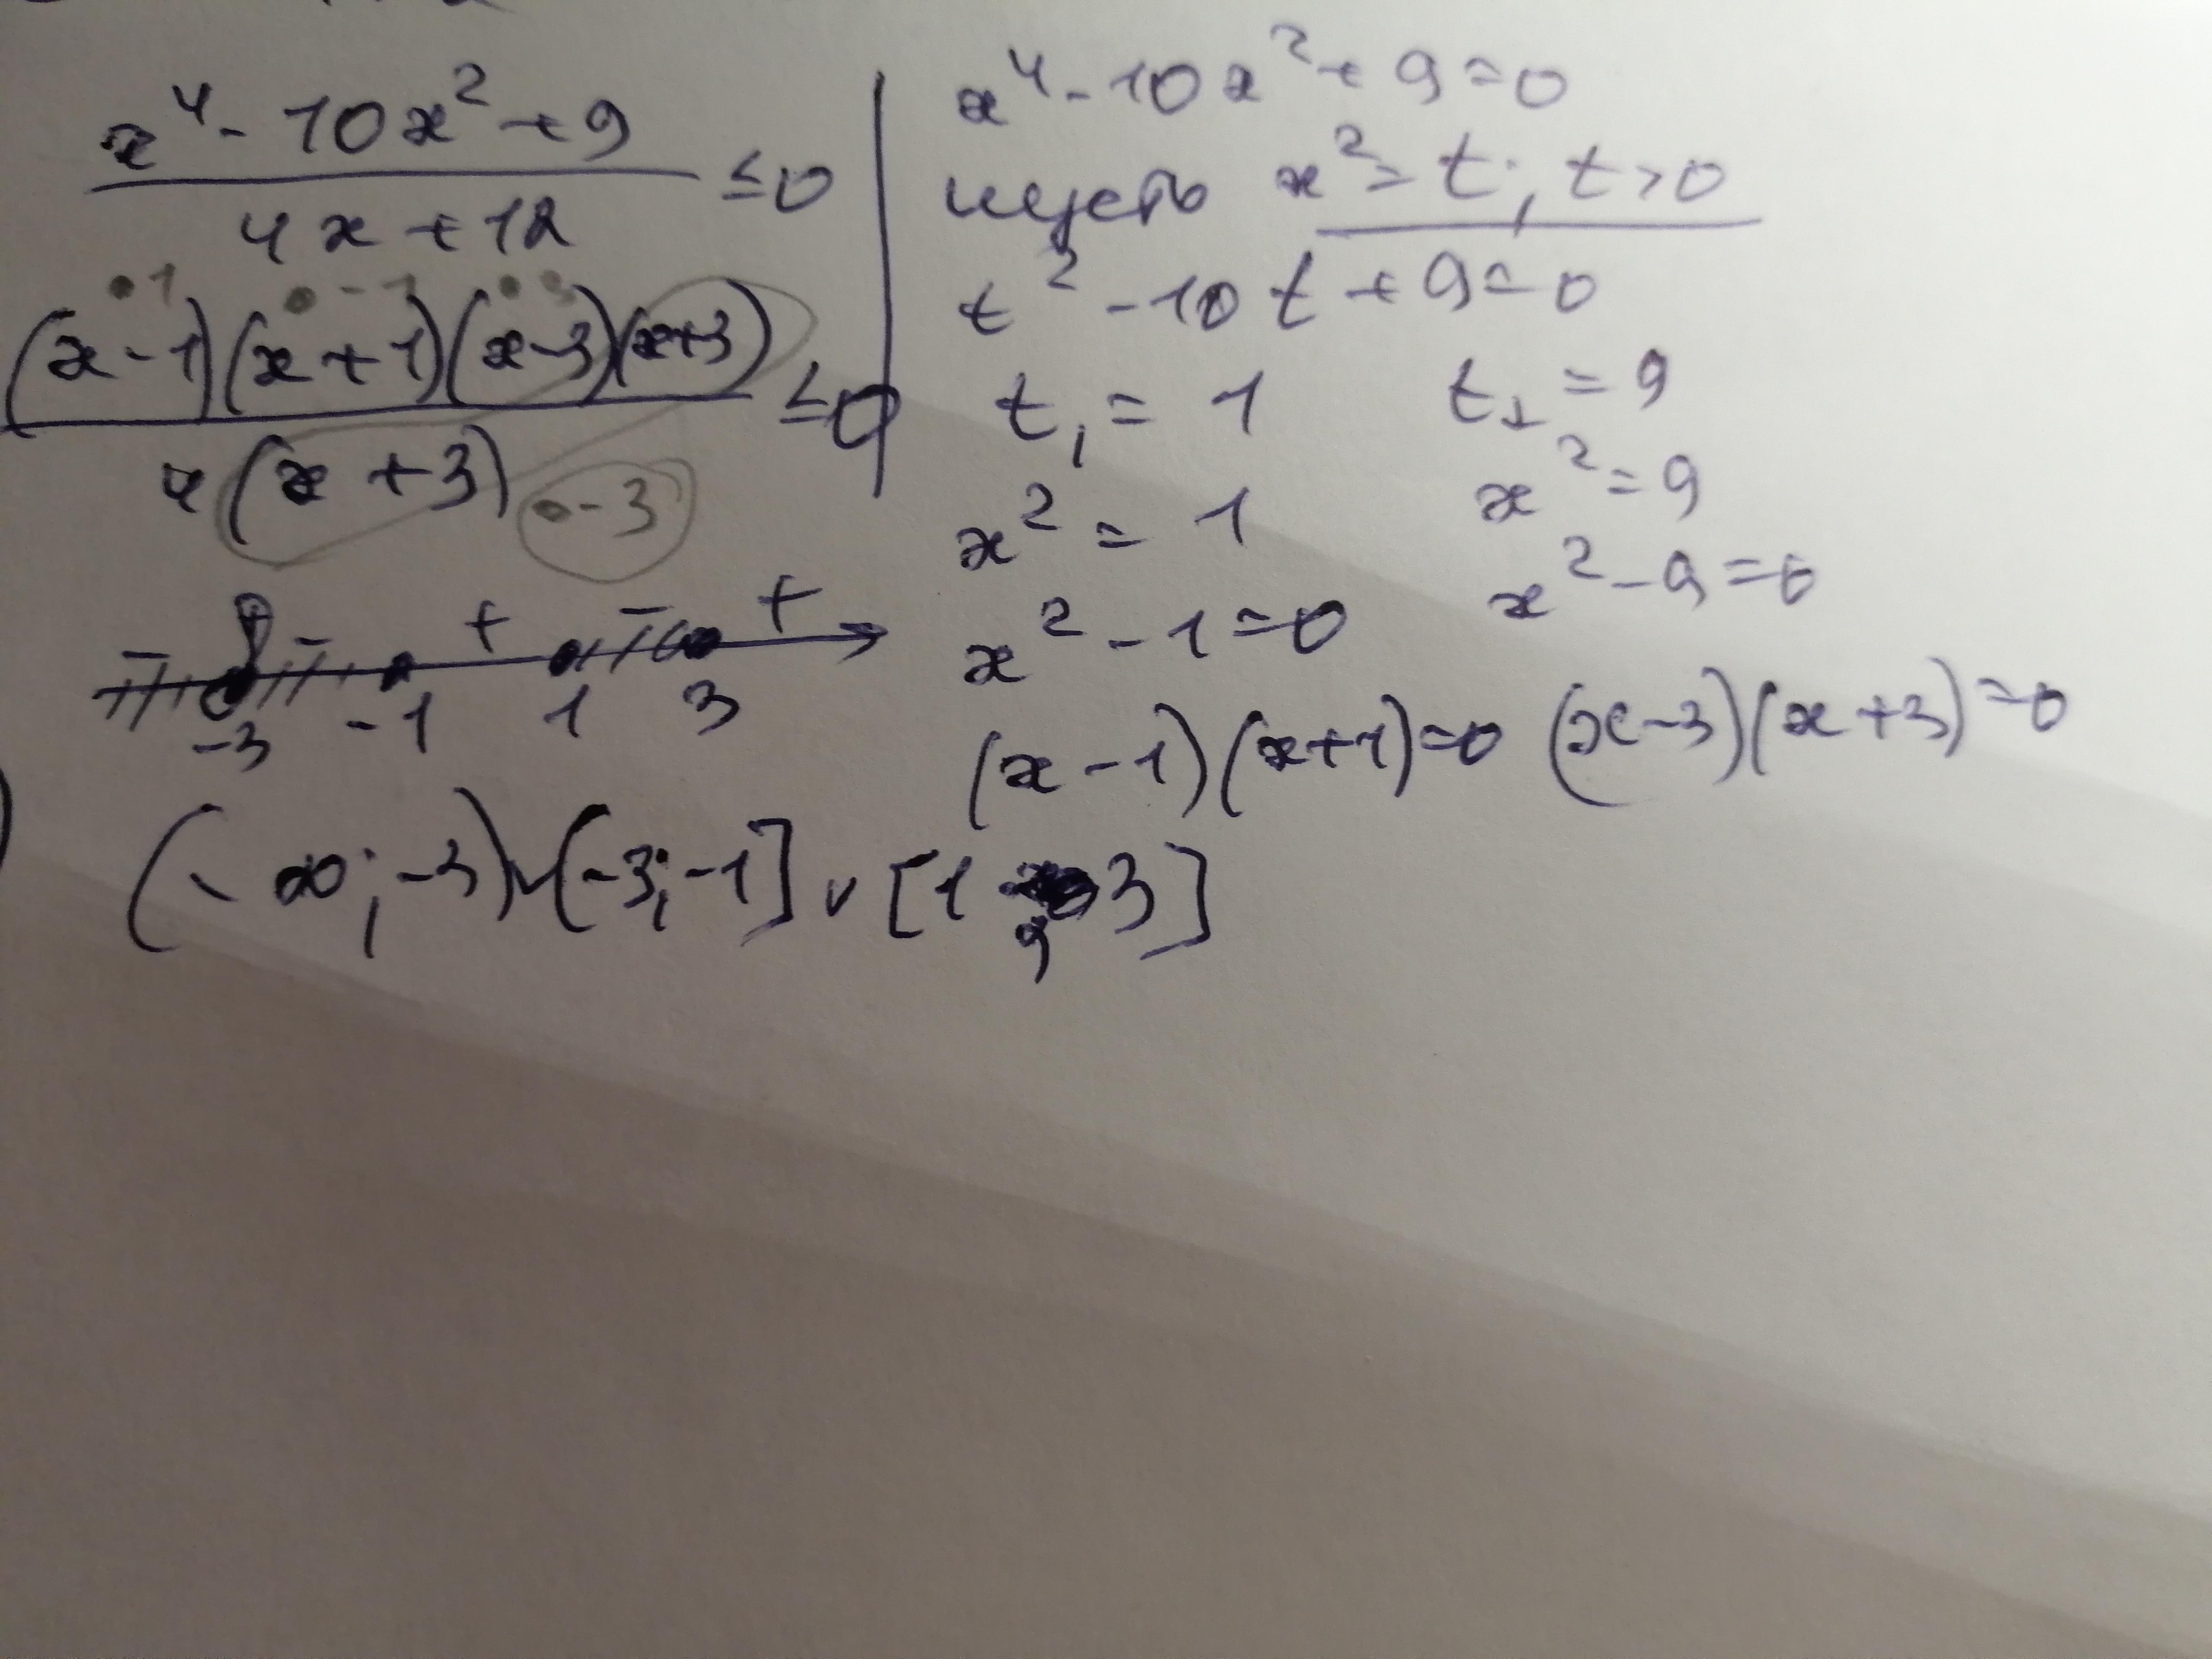 x⁴ - 10x² + 9
4x + 12
≤ 0
•1 •-1 •3
(x-1)(x+1)(x-3)(x+3)
4(x+3)
≤ 0
•-3
- - + - +
-3 -1 1 3
(-∞; -3)∪(-3; -1]∪[1; 3]
x⁴ - 10x² + 9 = 0
пусть x² = t, t > 0
t² - 10t + 9 = 0
t₁ = 1 t₂ = 9
x² = 1 x² = 9
x² - 1 = 0 x² - 9 = 0
(x-1)(x+1)=0 (x-3)(x+3)=0